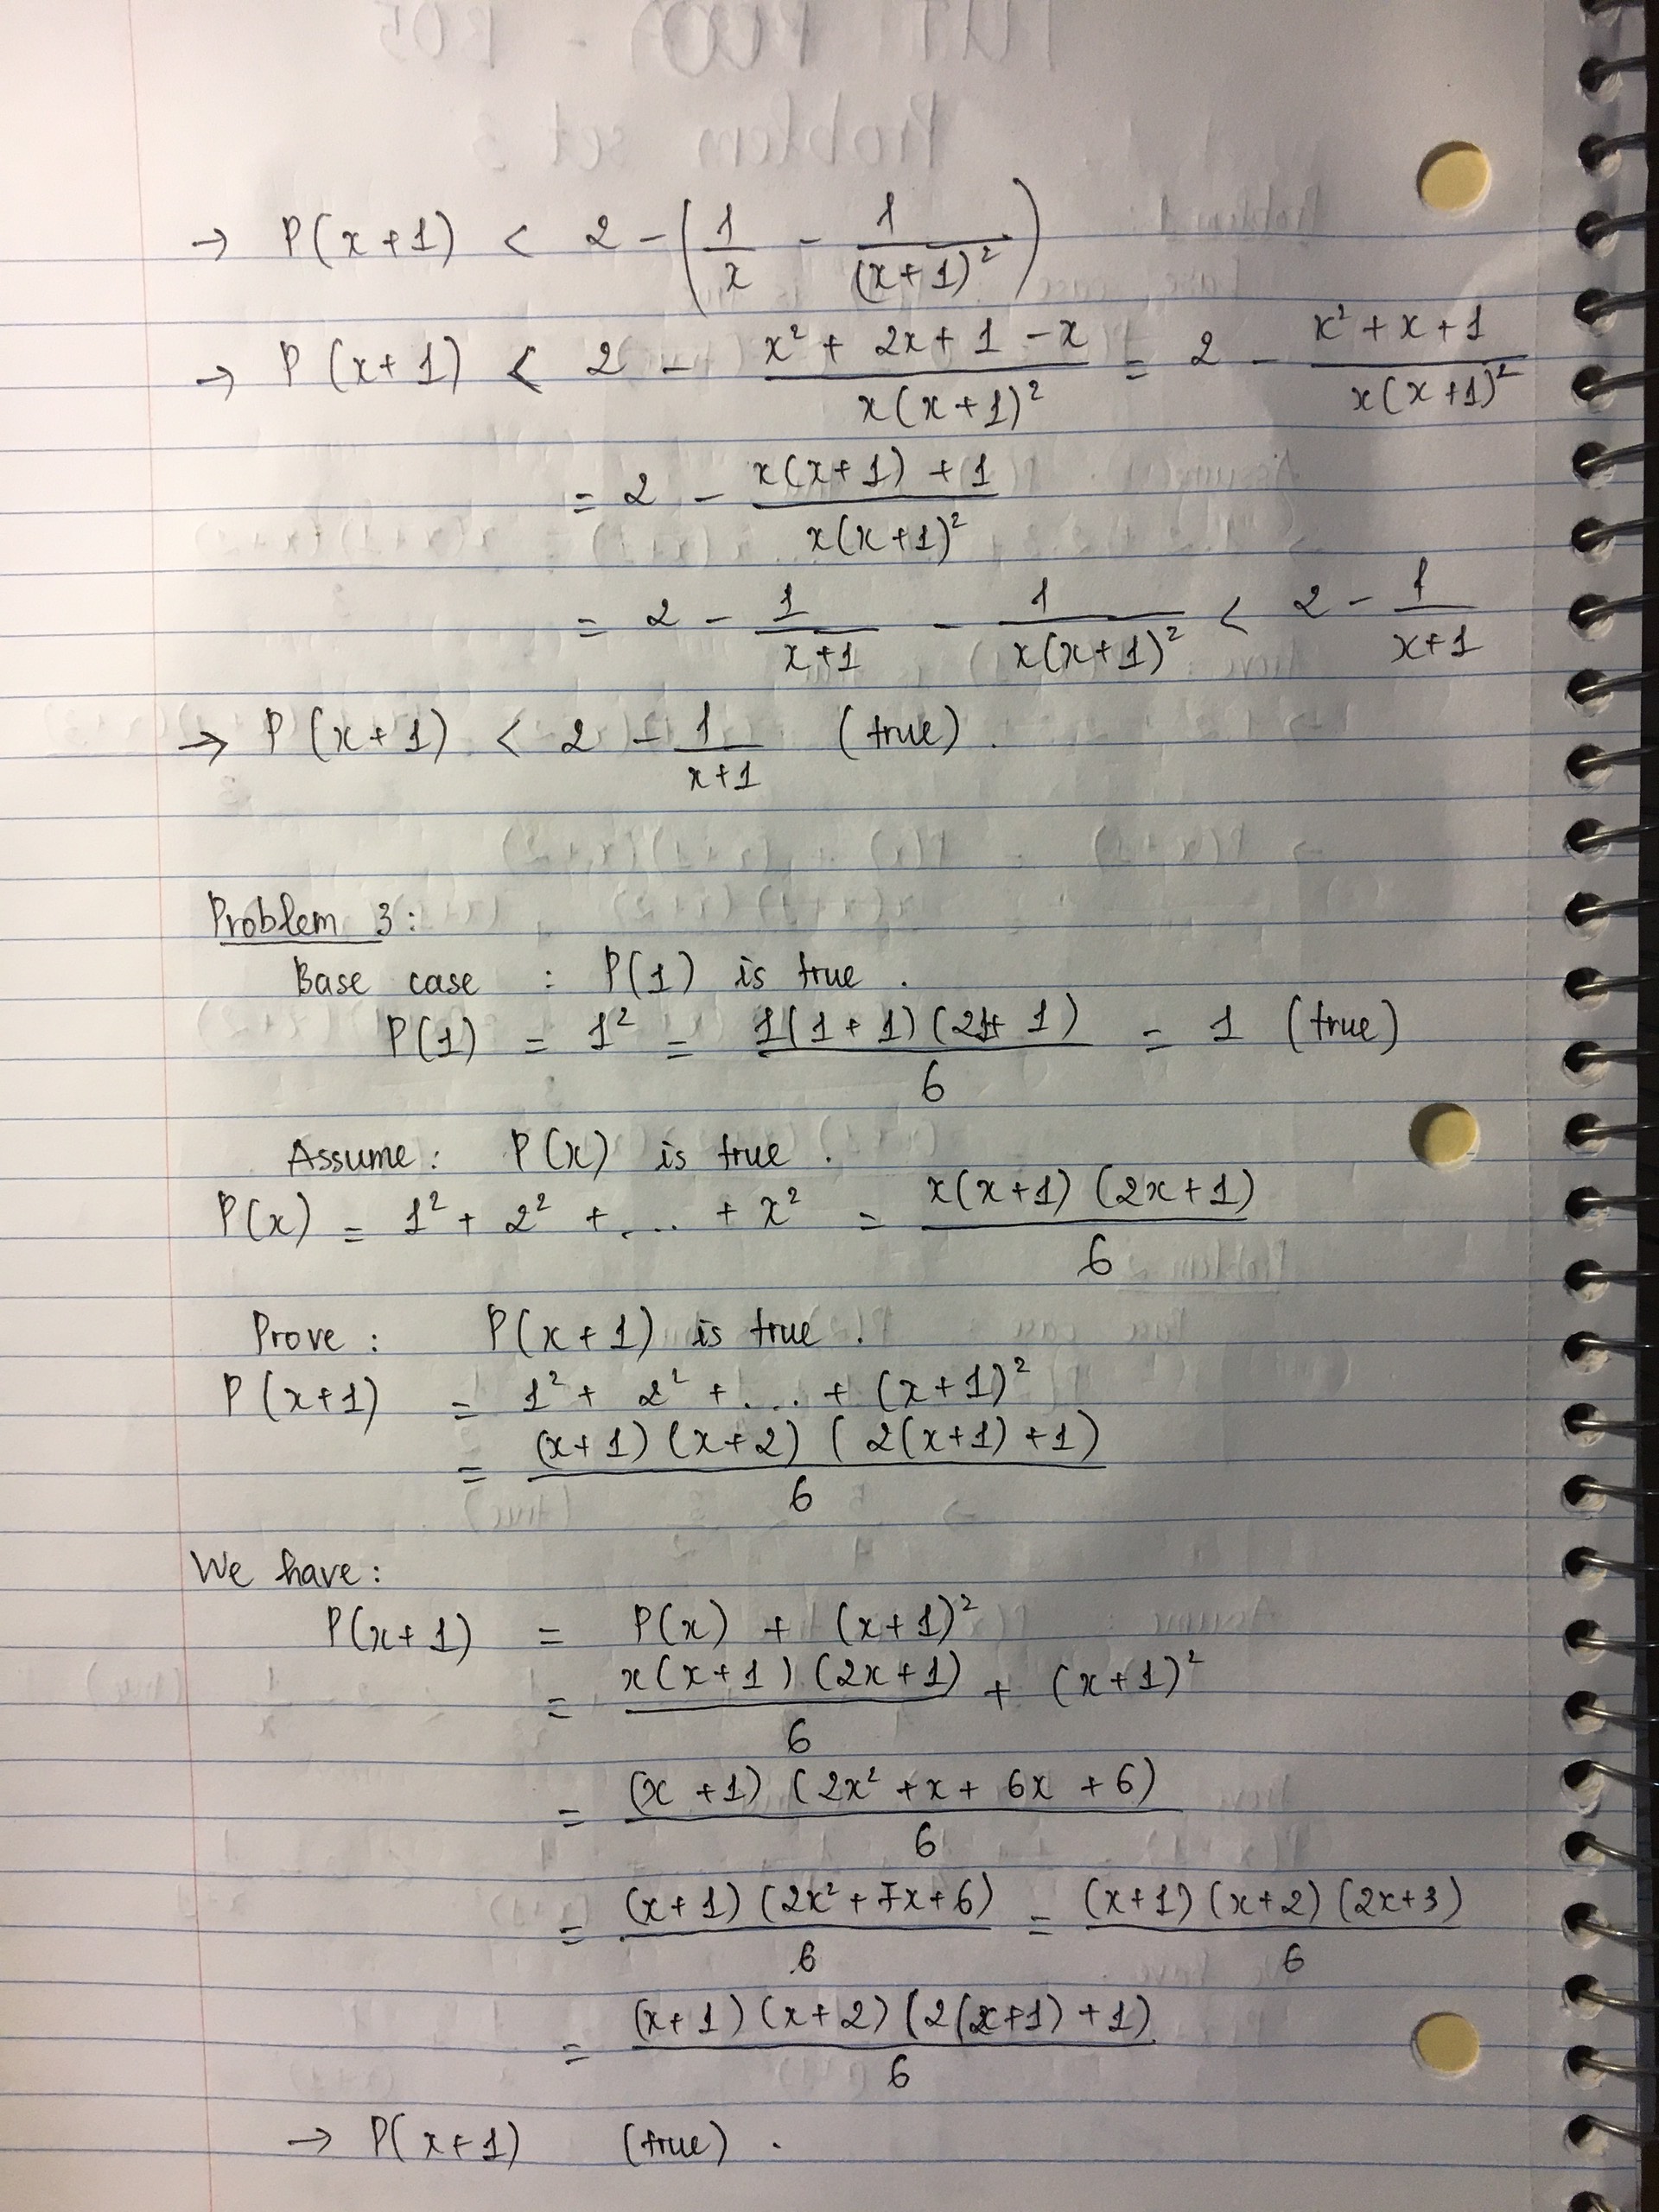 → P(x+1) < 2 - (1/x - 1/(x+1)²)
→ P(x+1) < 2 - (x² + 2x + 1 - x)/(x(x+1)²) = 2 - (x² + x + 1)/(x(x+1)²)
= 2 - (x(x+1) + 1)/(x(x+1)²)
= 2 - 1/(x+1) - 1/(x(x+1)²) < 2 - 1/(x+1)
→ P(x+1) < 2 - 1/(x+1) (true).
Problem 3:
Base case : P(1) is true.
P(1) = 1² = 1(1+1)(2+1)/6 = 1 (true)
Assume: P(x) is true.
P(x) = 1² + 2² + ... + x² = x(x+1)(2x+1)/6
Prove: P(x+1) is true.
P(x+1) = 1² + 2² + ... + (x+1)²
= (x+1)(x+2)(2(x+1)+1)/6
We have:
P(x+1) = P(x) + (x+1)²
= x(x+1)(2x+1)/6 + (x+1)²
= (x+1)(2x² + x + 6x + 6)/6
= (x+1)(2x² + 7x + 6)/6 = (x+1)(x+2)(2x+3)/6
= (x+1)(x+2)(2(x+1)+1)/6
→ P(x+1) (true).